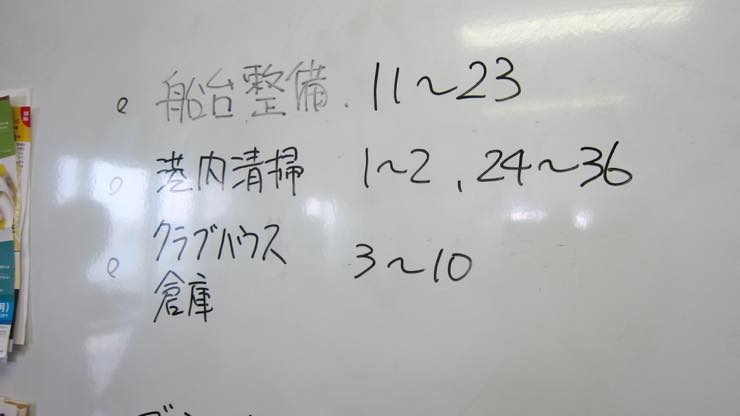 船台整備. 11～23
港内清掃 1～2, 24～36
クラブハウス 3～10
倉庫